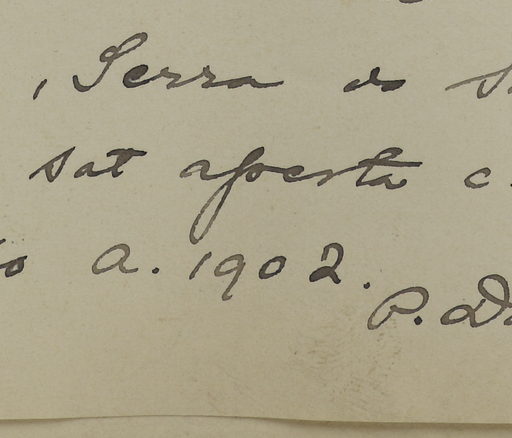 , Serra do
sat aperta c
a. 1902.
P. D